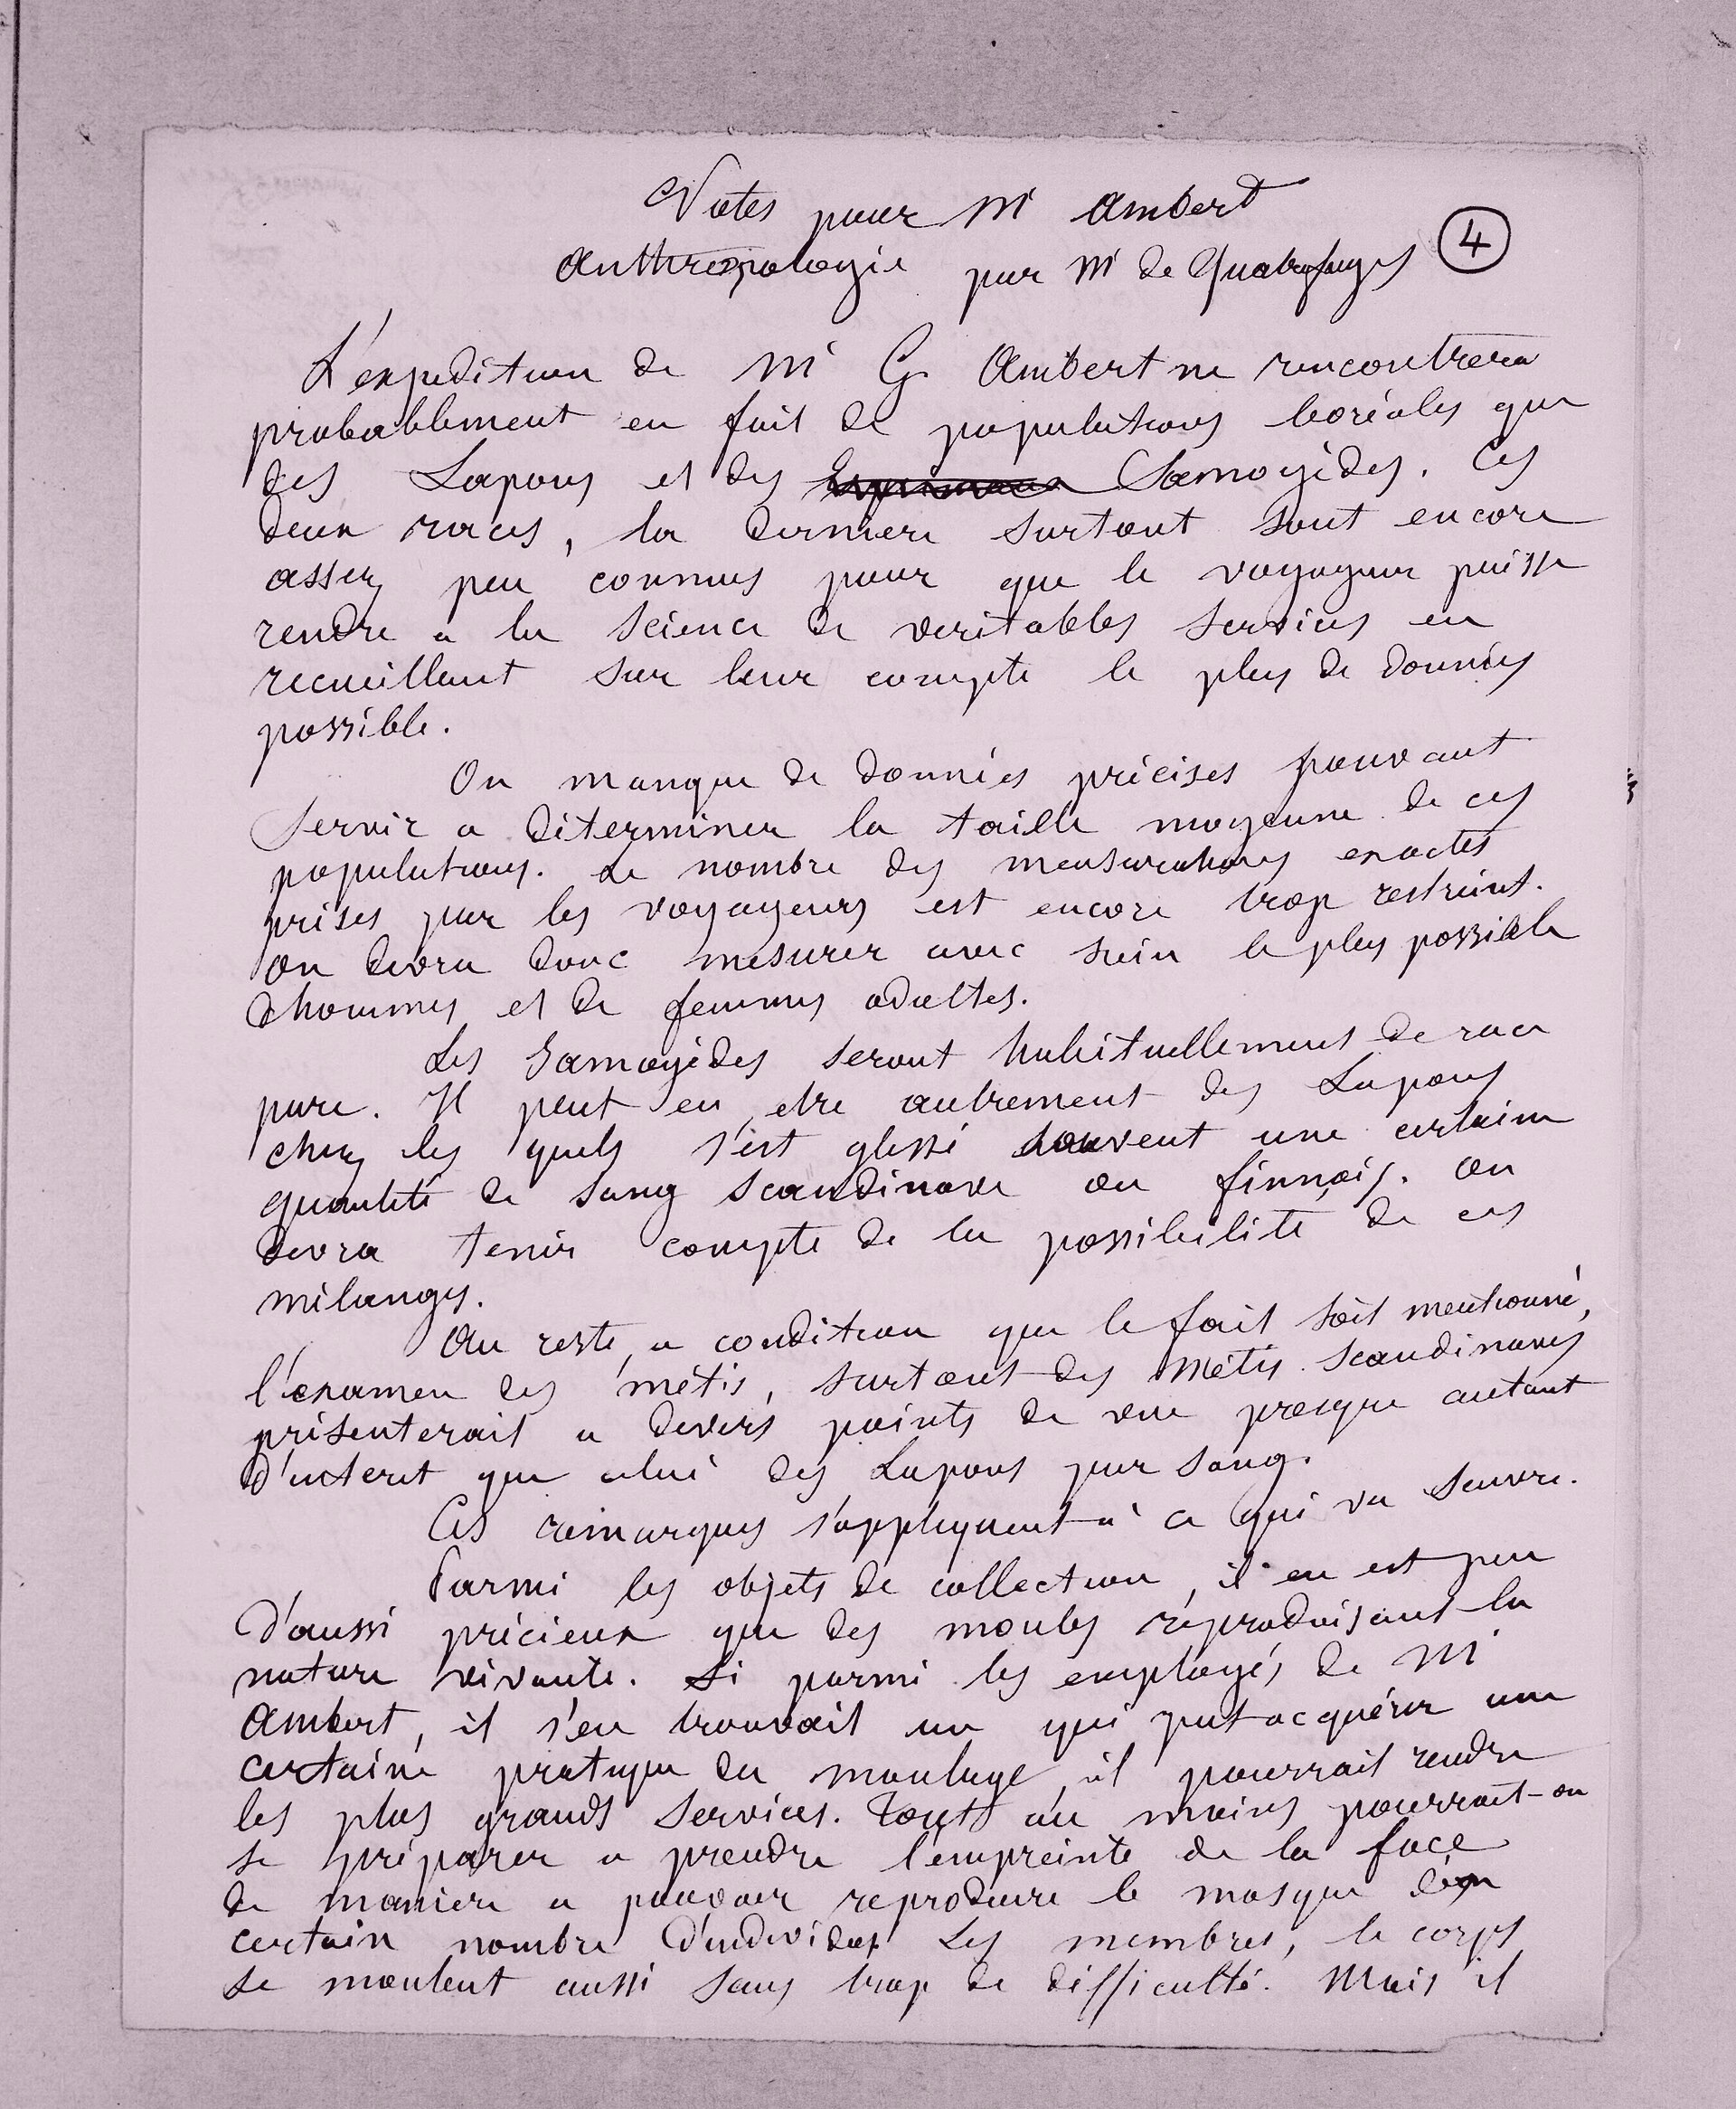 Notes pour Mr Ambert
Anthropologie par Mr de Quatrefages
4
L'éxpedition de Mr G Ambert ne rencontrera
probablement en fait de populations boréales que
des Lapons et des Esquimaux Samoyèdes. Ces
deux races, la derniere surtout sont encore
assez peu connues pour que le voyageur puisse
rendre a la science de veritables services en
recueillant sur leur compte le plus de données
possible.
On manque de données précises pouvant
servir a déterminer la taille moyenne de ces
populations. Le nombre des mensurations exactes
prises par les voyageurs est encore trop restreint.
On devra donc mesurer avec soin le plus possible
d'hommes et de femmes adultes.
Les Samoyèdes seront habituellement de race
pure. Il peut en etre autrement des Lapons
chez les quels s'est glissé souvent une certaine
quantité de sang scandinave ou finnois. On
devra tenir compte de la possibilité de ces
mélanges.
Au reste, a condition que le fait soit mentionné,
l'examen des métis, surtout des métis scandinaves
présenterait a divers points de vue presque autant
d'interet que celui des Lapons pur sang.
Ces remarques s'appliquent à ce qui va suivre.
Parmi les objets de collection, il en est peu
d'aussi précieux que des moules réproduisant la
nature vivante. Si parmi les employés de Mr
Ambert, il s'en trouvait un qui put acquérir une
certaine pratique du moulage, il pourrait rendre
les plus grands services. Tout au moins pourrait-on
se préparer a prendre l'empreinte de la face
de maniere a pouvoir reproduire le masque d'un
certain nombre d'individus. Les membres, le corps
se moulent aussi sans trop de difficulté. Mais il